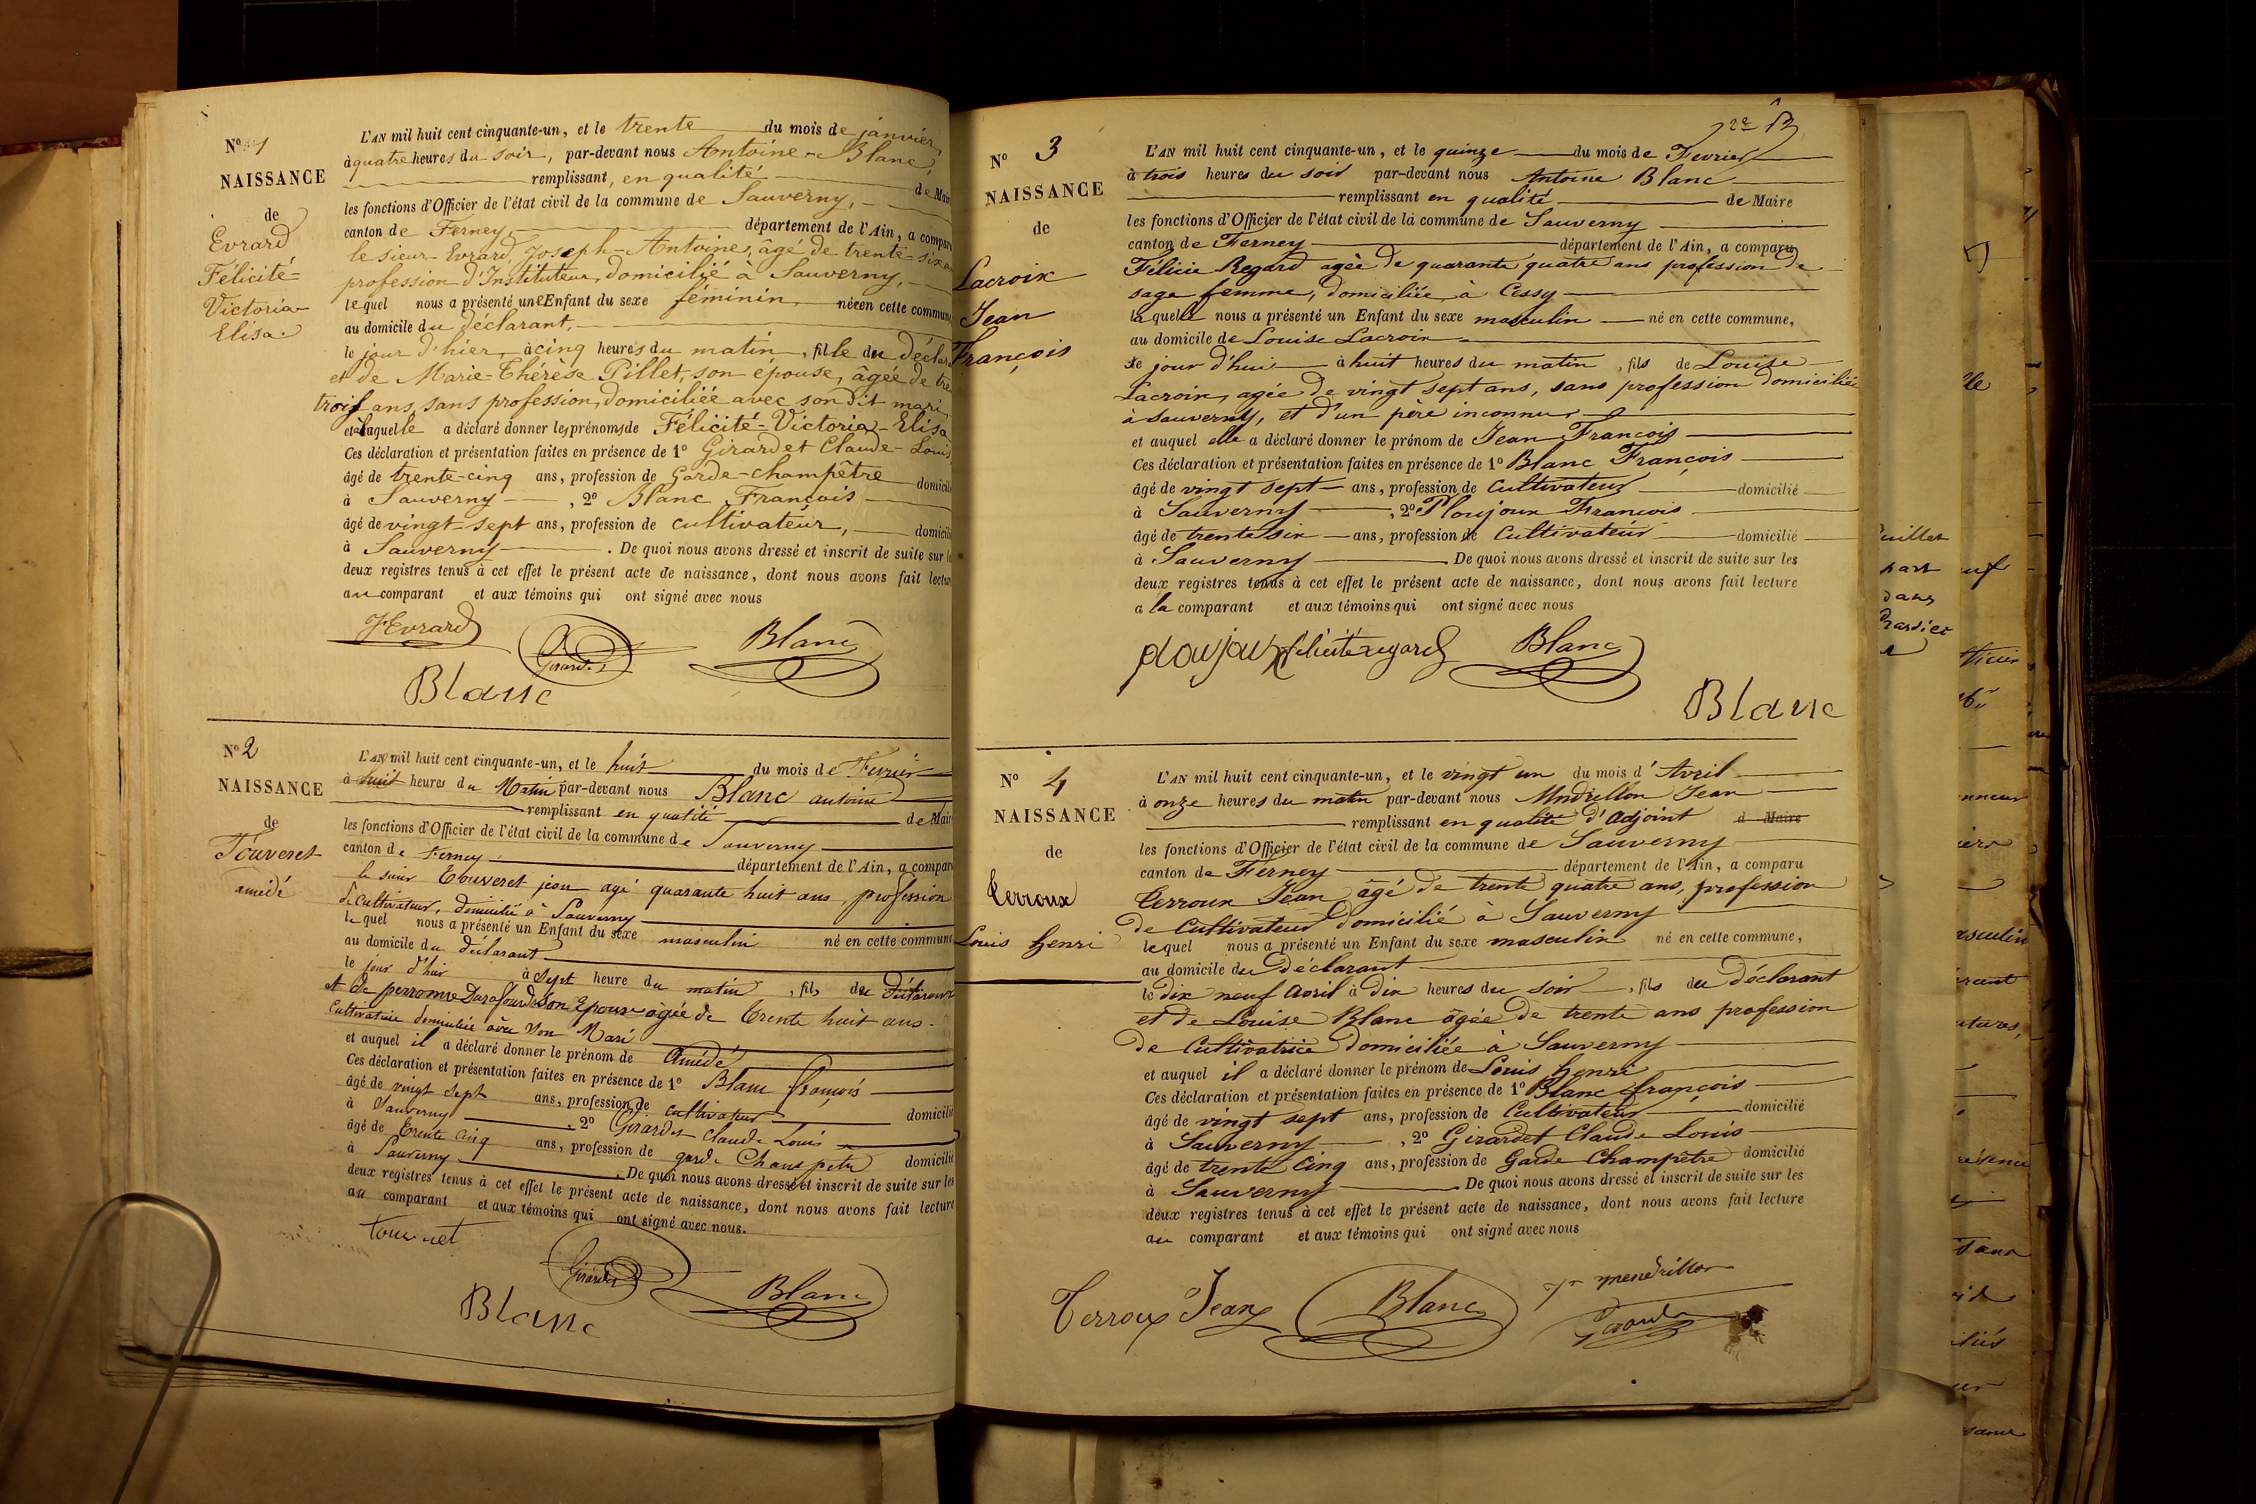 N° 1
NAISSANCE
de
Evrard
Félicité-
Victoria-
Elisa.
L'AN mil huit cent cinquante-un, et le trente du mois de janvier,
à quatre heures du soir, par-devant nous Antoine Blanc,
remplissant, en qualité de Mair
les fonctions d'Officier de l'état civil de la commune de Sauverny,
canton de Ferney, département de l'Ain, a comparu
le sieur Evrard, Joseph-Antoine, âgé de trente-six ans
profession d'Instituteur, domicilié à Sauverny,
lequel nous a présenté une Enfant du sexe féminin née en cette commune
au domicile du déclarant,
le jour d'hier à cinq heures du matin, fille du déclar
et de Marie-Thérèse Pillet, son épouse, âgée de tre
trois ans, sans profession, domiciliée avec son dit mari
et à laquelle a déclaré donner les prénoms de Félicité-Victoria-Elisa
Ces déclaration et présentation faites en présence de 1° Girardet Claude-Louis
âgé de trente-cinq ans, profession de Garde-champêtre domicilié
à Sauverny, 2° Blanc François
âgé de vingt-sept ans, profession de cultivateur, domicilié
à Sauverny. De quoi nous avons dressé et inscrit de suite sur le
deux registres tenus à cet effet le présent acte de naissance, dont nous avons fait lecture
au comparant et aux témoins qui ont signé avec nous
JEvrard Girardet Blanc
Blanc
N° 2
NAISSANCE
de
Touveret
amédé
L'AN mil huit cent cinquante-un, et le huit du mois de Fevrier
à huit heures du Matin par-devant nous Blanc antoine
remplissant en qualité de Mair
les fonctions d'Officier de l'état civil de la commune de Sauverny
canton de Ferney département de l'Ain, a comparu
le sieur Touveret jean agé quarante huit ans, profession
de cultivateur, domicilié à Sauverny
lequel nous a présenté un Enfant du sexe masculin né en cette commune
au domicile du déclarant
le jour d'hier à sept heure du matin, fils du Déclarant
et de perronne son Epouse agée de trente huit ans
Cultivatrice domiciliée avec son Mari
et auquel il a déclaré donner le prénom de Amédé
Ces déclaration et présentation faites en présence de 1° Blanc françois
âgé de vingt sept ans, profession de cultivateur domicilié
à Sauverny, 2° Girardet Claude Louis
âgé de trente cinq ans, profession de garde Champetre domicilié
à Sauverny. De quoi nous avons dressé et inscrit de suite sur les
deux registres tenus à cet effet le présent acte de naissance, dont nous avons fait lecture
au comparant et aux témoins qui ont signé avec nous.
Girardet
Blanc Blanc
N° 3
NAISSANCE
de
Lacroix
Jean
François
L'AN mil huit cent cinquante-un, et le quinze du mois de Fevrier
à trois heures du soir par-devant nous Antoine Blanc
remplissant en qualité de Maire
les fonctions d'Officier de l'état civil de la commune de Sauverny
canton de Ferney département de l'Ain, a comparu
Félicie Regard agée de quarante quatre ans profession de
sage femme, domiciliée à Cessy
laquelle nous a présenté un Enfant du sexe masculin né en cette commune,
au domicile de Louise Lacroix
le jour d'hui à huit heures du matin, fils de Louise
Lacroix, agée de vingt sept ans, sans profession domiciliée
à Sauverny, et d'un père inconnu
et auquel elle a déclaré donner le prénom de Jean François
Ces déclaration et présentation faites en présence de 1° Blanc François
âgé de vingt sept ans, profession de cultivateur domicilié
à Sauverny, 2° Ploujoux François
âgé de trente six ans, profession de Cultivateur domicilié
à Sauverny De quoi nous avons dressé et inscrit de suite sur les
deux registres tenus à cet effet le présent acte de naissance, dont nous avons fait lecture
a la comparant et aux témoins qui ont signé avec nous
ploujoux felicite regard Blanc
Blanc
N° 4
NAISSANCE
de
Terroux
Louis henri
L'AN mil huit cent cinquante-un, et le vingt un du mois d'Avril
à onze heures du matin par-devant nous Mndrillon Jean
remplissant en qualité d'Adjoint d Maire
les fonctions d'Officier de l'état civil de la commune de Sauverny
canton de Ferney département de l'Ain, a comparu
Terroux Jean âgé de trente quatre ans, profession
de Cultivateur domicilié à Sauverny
lequel nous a présenté un Enfant du sexe masculin né en cette commune,
au domicile du Déclarant
le dix neuf avril à dix heures du soir, fils du déclarant
et de Louise Blanc âgée de trente ans profession
de Cultivatrice domiciliée à Sauverny
et auquel il a déclaré donner le prénom de Louis henri
Ces déclaration et présentation faites en présence de 1° Blanc françois
âgé de vingt sept ans, profession de Cultivateur domicilié
à Sauverny, 2° Girardet Claude Louis
âgé de trente Cinq ans, profession de Garde Champêtre domicilié
à Sauverny. De quoi nous avons dressé et inscrit de suite sur les
deux registres tenus à cet effet le présent acte de naissance, dont nous avons fait lecture
au comparant et aux témoins qui ont signé avec nous
Terroux Jean Blanc Jn mendrillon